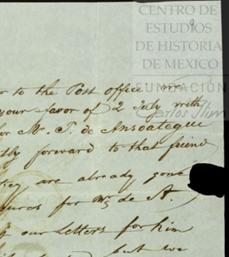 CENTRO DE
ESTUDIOS
DE HISTORIA
DE MEXICO
FUNDACIÓN
Carlos Slim
or to the Post office
your favor of 2 July with
for Mr. T. de Ansoategui
forward to that friend
are already gone
for de A.
our Letters for him
but we